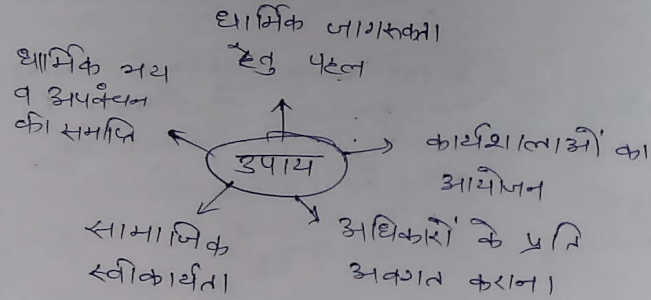 धार्मिक जागरूकता
हेतु पहल
धार्मिक भय
व अपवंचन
की समाप्ति
उपाय
कार्यशालाओं का
आयोजन
सामाजिक
स्वीकार्यता
अधिकारों के प्रति
अवगत कराना